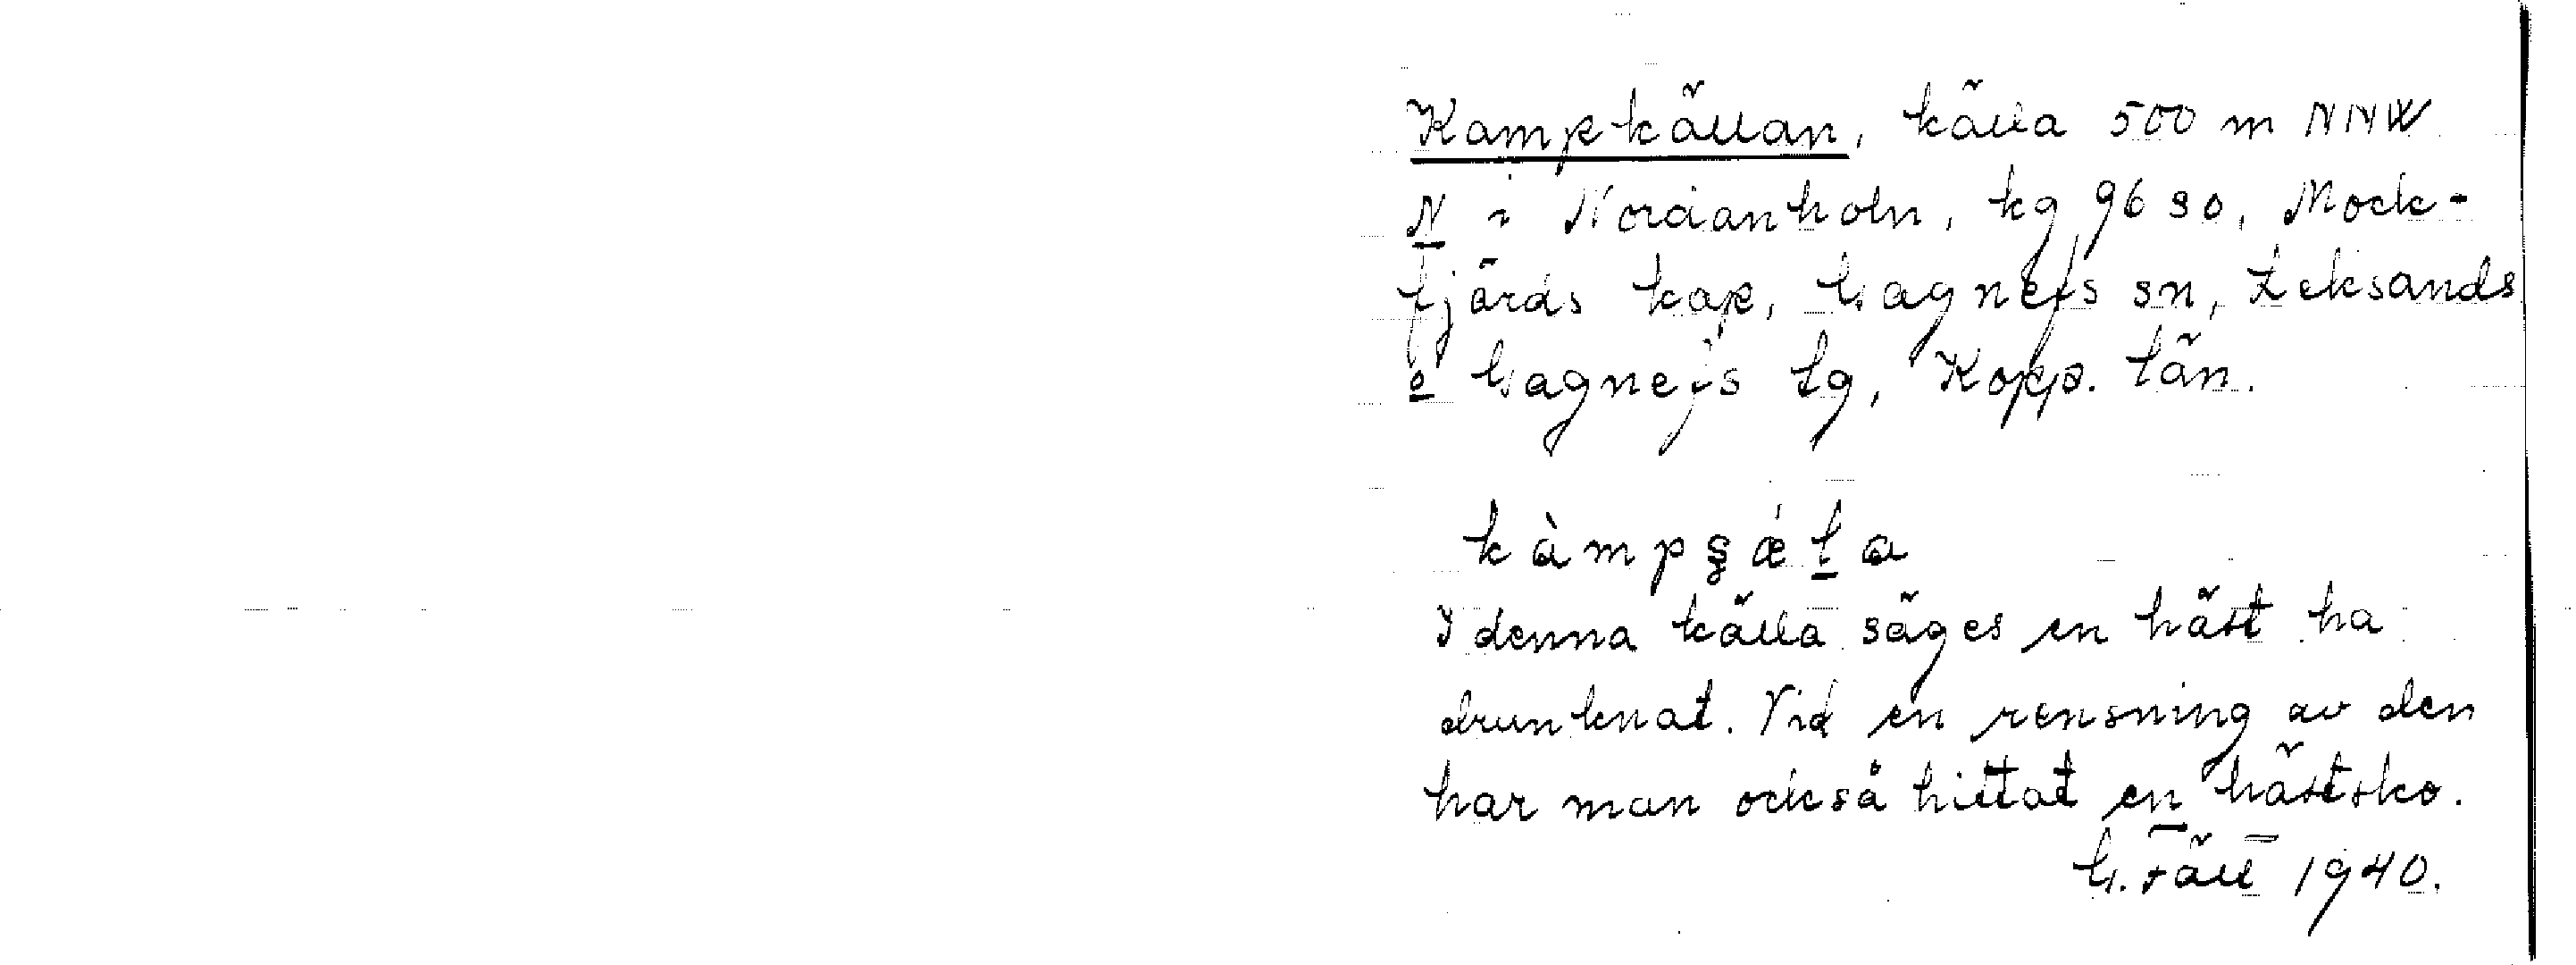 Kampkällan, källa 500 m NNW
N i Nordanholn, kg 96 so, Mock-
fjärds kap, Gagnefs sn, Leksands
o Gagnefs tg, Kopp. län.
kàmpʂǽla
I denna källa säges en häst ha
drunknat. Vid en rensning av den
har man också hittat en hästsko.
G. Fält 1940.